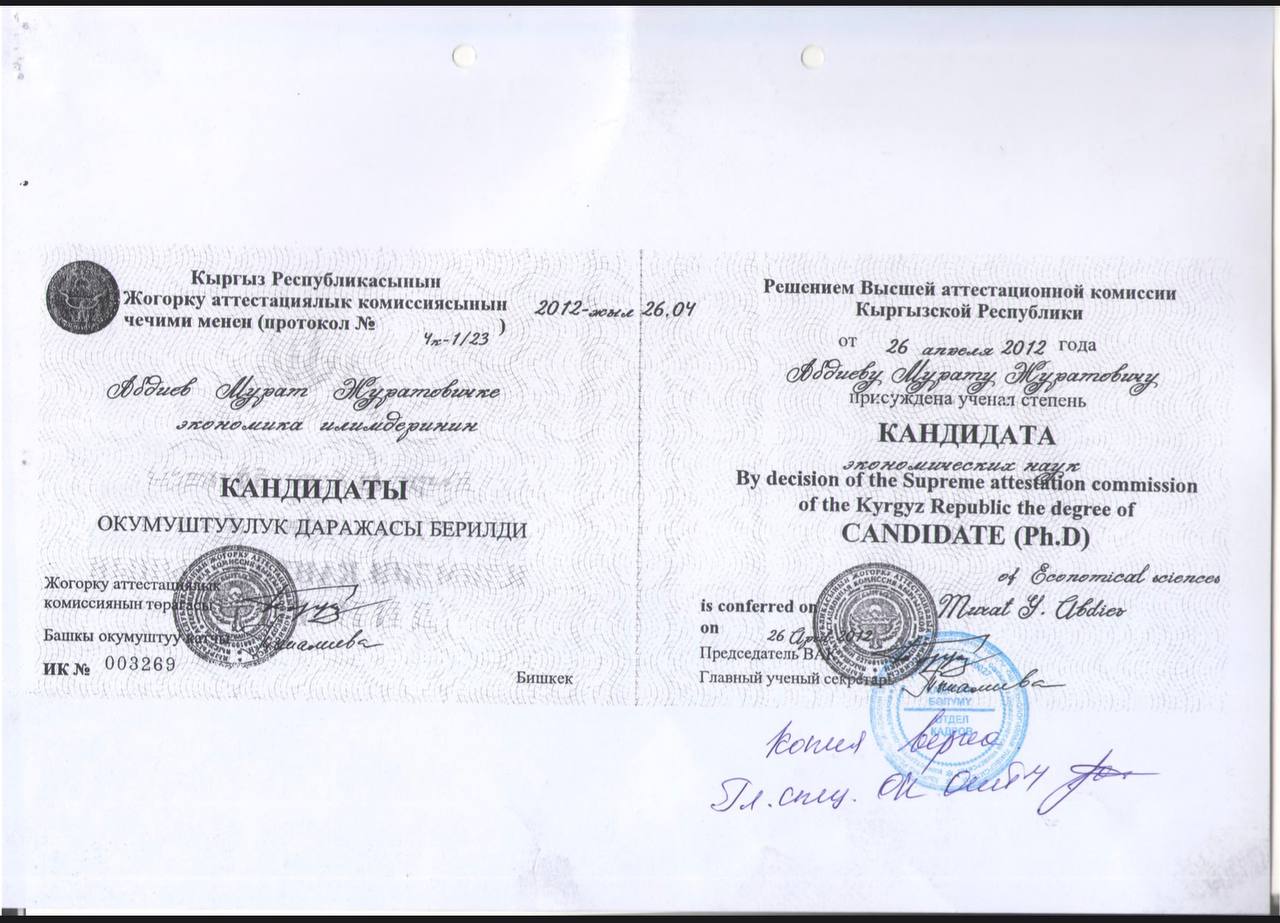 Кыргыз Республикасынын
Жогорку аттестациялык комиссиясынын 2012-жыл 26.04
чечими менен (протокол № Чк-1/23 )
Абдиев Мурат Журатовичке
экономика илимдеринин
КАНДИДАТЫ
ОКУМУШТУУЛУК ДАРАЖАСЫ БЕРИЛДИ
Жогорку аттестациялык
комиссиянын төрагасы
Башкы окумуштуу катчы
ИК № 003269
Бишкек
Решением Высшей аттестационной комиссии
Кыргызской Республики
от 26 апреля 2012 года
Абдиеву Мурату Журатовичу
присуждена ученая степень
КАНДИДАТА
экономических наук
By decision of the Supreme attestation commission
of the Kyrgyz Republic the degree of
CANDIDATE (Ph.D)
of Economical sciences
is conferred on Murat Y. Abdiev
on 26 April 2012
Председатель ВАК
Главный ученый секретарь
БӨЛҮМҮ
ОТДЕЛ
КАДРОВ
Копия верна
Гл. спец. ОК